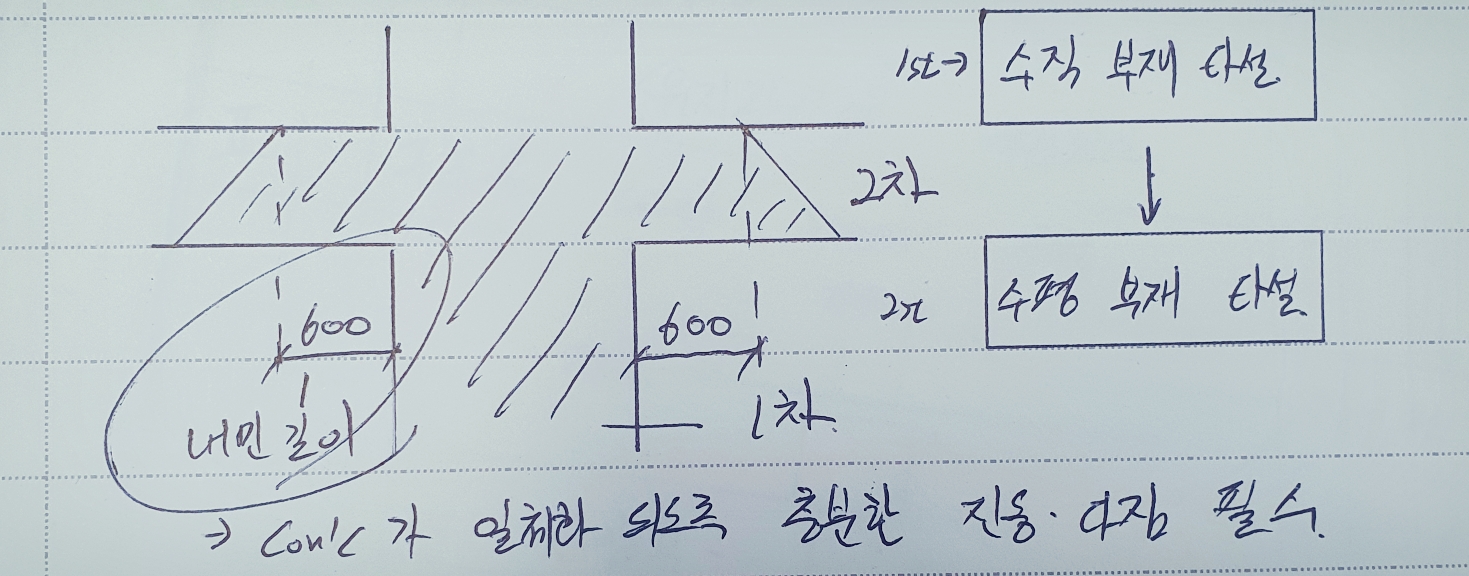 1st→ 수직 부재 타설.
2차
2차 수평 부재 타설.
600
600
내민 길이
1차.
→ Con'c가 일체화 되도록 충분한 진동·다짐 필수.